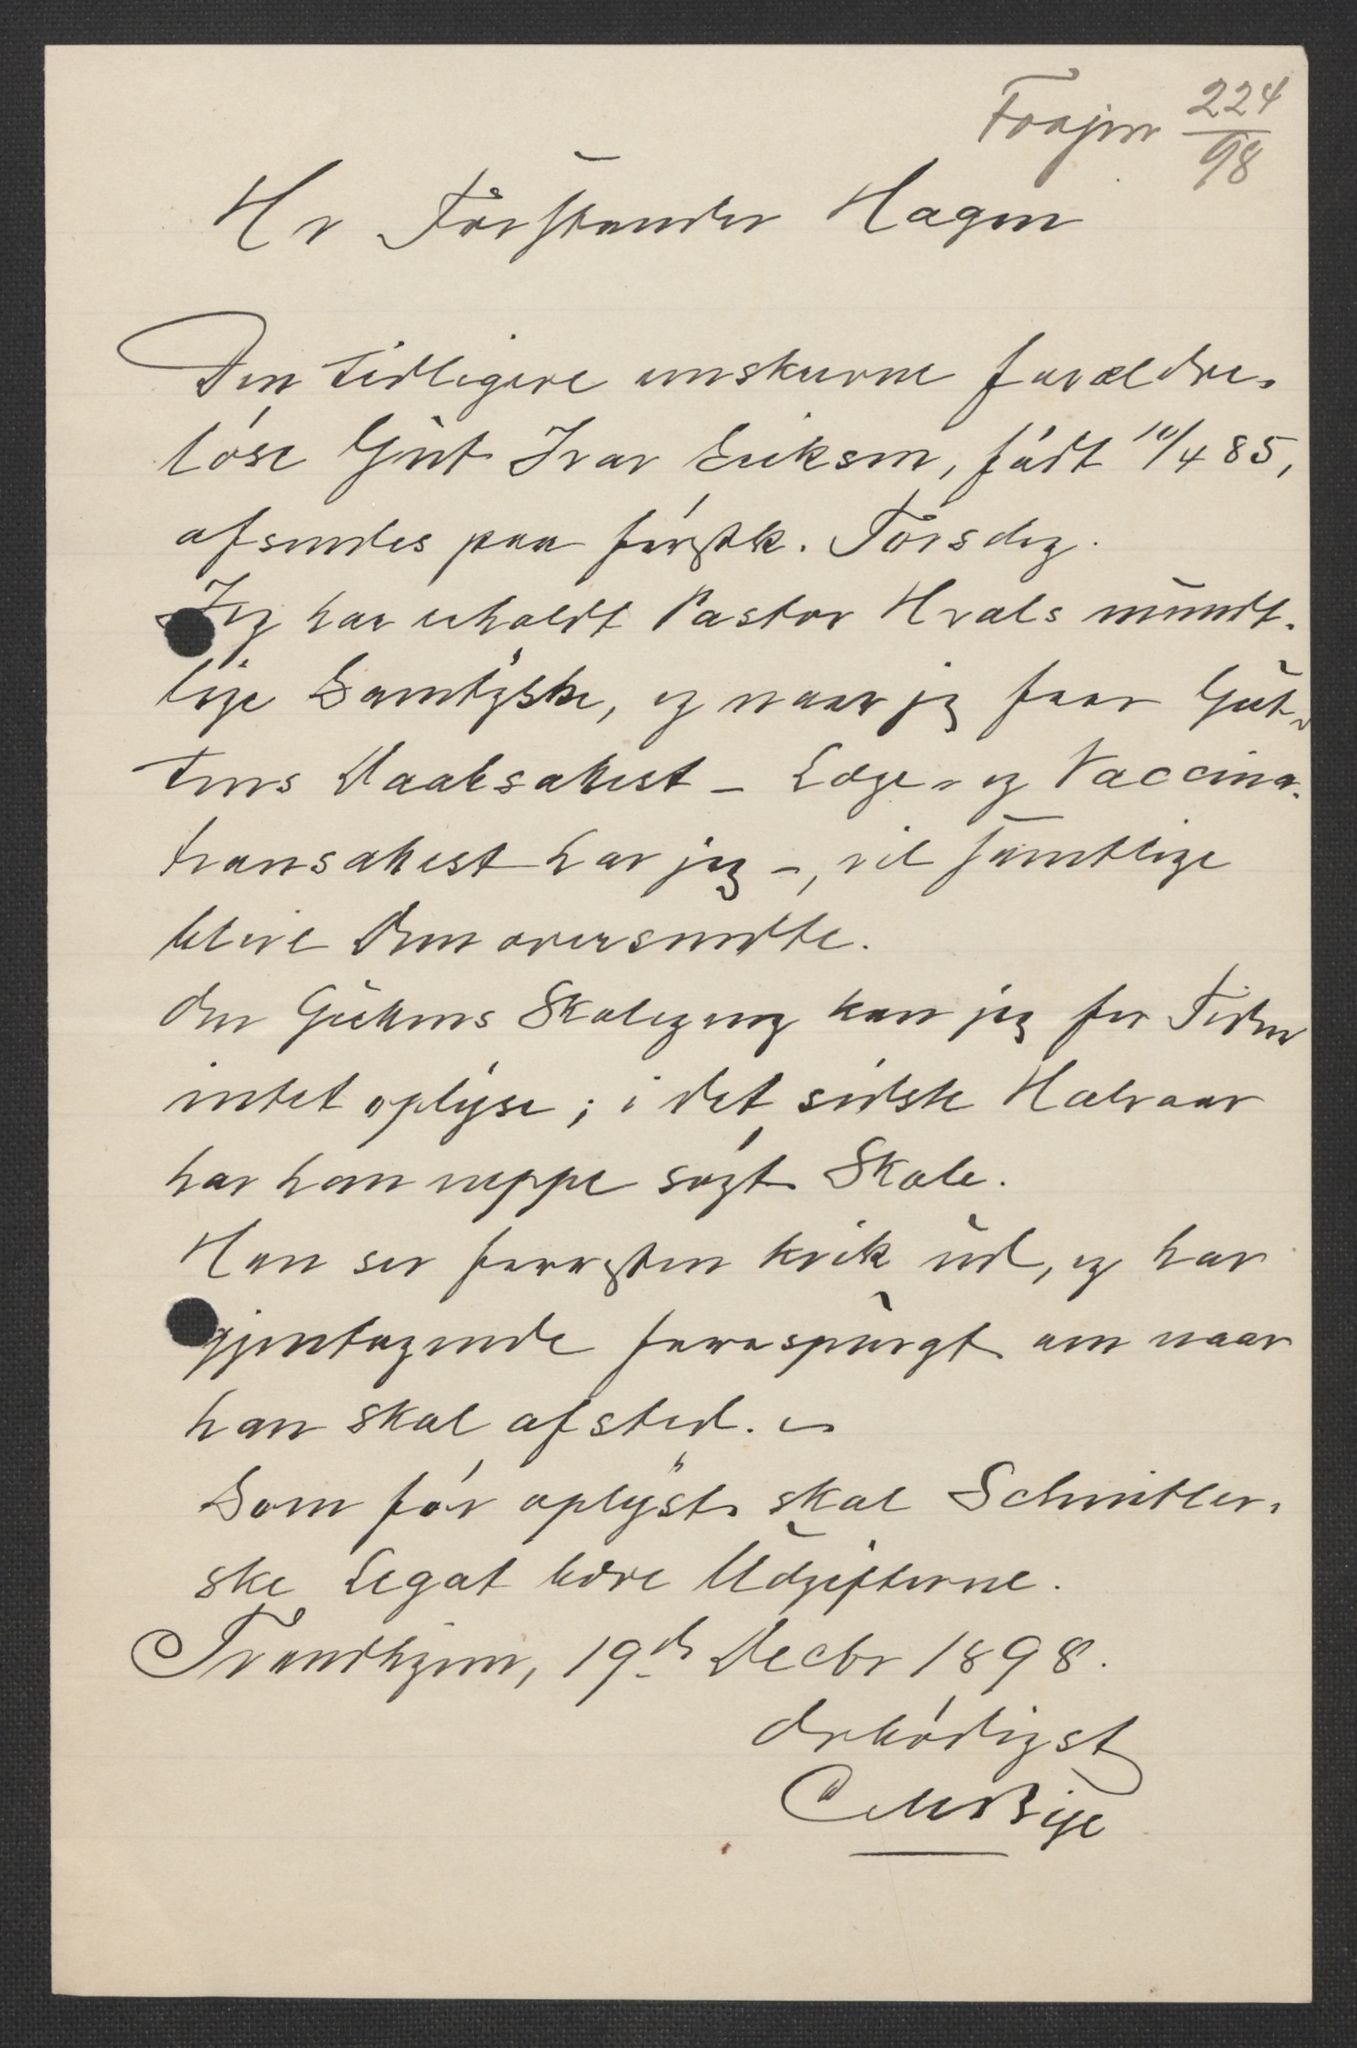 224
98
Hr Forstander Hagen
Den tidligere omskrevne forældre-
løse Gut Ivar Eriksen, født 10/4 85,
afsendes paa førstk. Torsdag.
Jeg har erholdt Pastor Hvals mundt-
lige Samtykke, og naar jeg faar Gut-
tens Daabsattest – Læge- og Vaccina-
tionsattest har jeg –, vil samtlige
blive Dem oversendte.
Om Guttens Skolegang kan jeg for Tiden
intet oplyse; i det sidste Halvaar
har han neppe søgt Skole.
Han ser forresten kvik ud, og har
gjentagende forespurgt om naar
han skal afsted. –
Som før oplyst skal Schmitler-
ske Legat bære Udgifterne.
Trondhjem, 19de Decbr 1898.
Ærbødigst